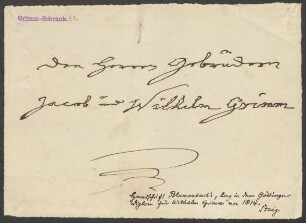 Grimm-Schrank
Den Herren Gebrüdern
Jacob und Wilhelm Grimm
Handschrift Blumenbach's, lag in dem Göttinger
Wilhelm Grimm's von 1814.